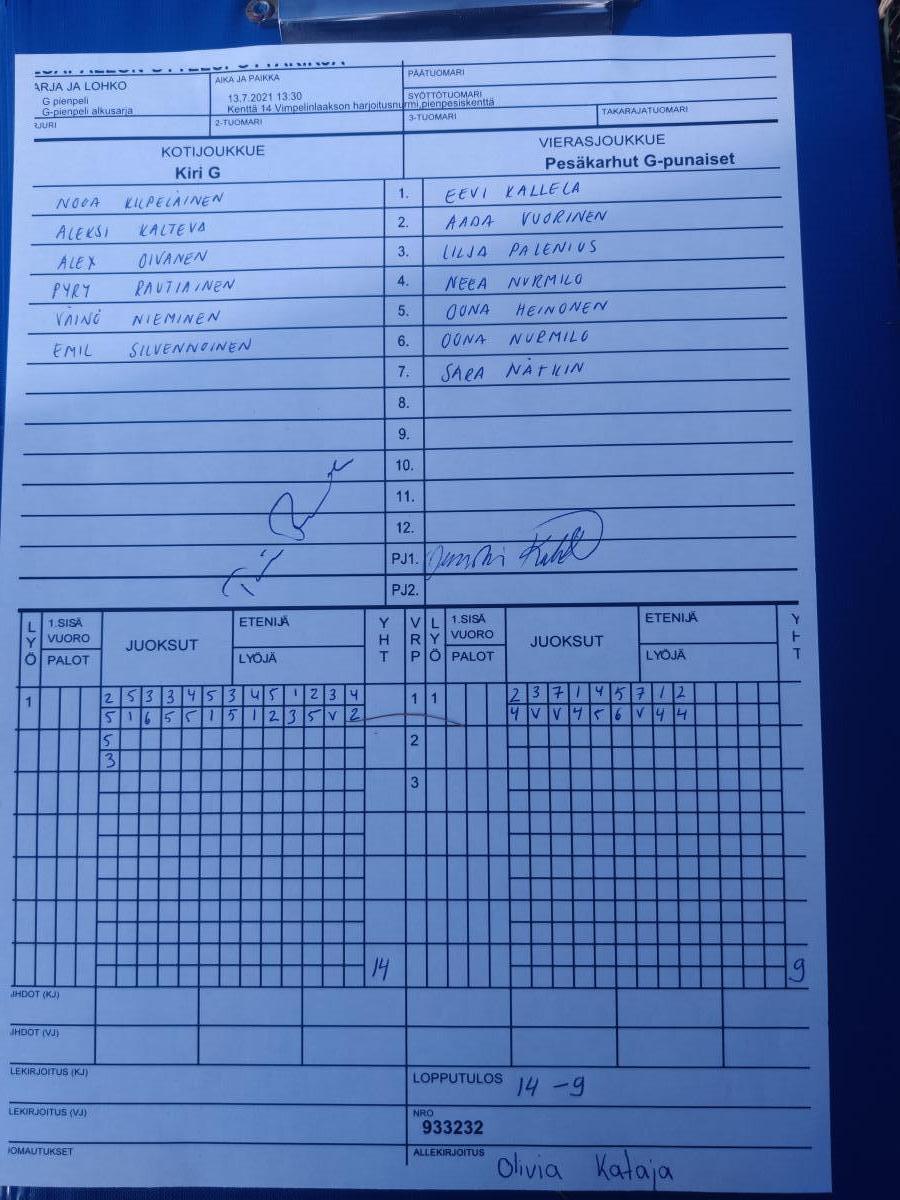 ARJA JA LOHKO
G pienpeli
G-pienpeli alkusarja
AIKA JA PAIKKA
13.7.2021 13:30
Kenttä 14 Vimpelinlaakson harjoitusnurmi,pienpesiskenttä
PÄÄTUOMARI
SYÖTTÖTUOMARI
RJURI
2-TUOMARI
3-TUOMARI
TAKARAJATUOMARI
KOTIJOUKKUE
Kiri G
VIERASJOUKKUE
Pesäkarhut G-punaiset
NOOA KILPELÄINEN 1. EEVI KALLELA
ALEKSI KALTEVA 2. AADA VUORINEN
ALEX OIVANEN 3. LILJA PALENIUS
PYRY RAUTIAINEN 4. NEEA NURMILO
VÄINÖ NIEMINEN 5. OONA HEINONEN
EMIL SILVENNOINEN 6. OONA NURMILO
7. SARA NÄTKIN
8.
9.
10.
11.
12.
PJ1.
PJ2.
LYÖ 1.SISÄ VUORO PALOT JUOKSUT ETENIJÄ LYÖJÄ YHT VRP LYÖ 1.SISÄ VUORO PALOT JUOKSUT ETENIJÄ LYÖJÄ YHT
1 2 5 3 3 4 5 3 4 5 1 2 3 4 1 1 2 3 7 1 4 5 7 1 2
5 1 6 5 5 1 5 1 2 3 5 V 2 4 V V 4 5 6 V 4 4
5 2
3
3
14 9
JHDOT (KJ)
JHDOT (VJ)
LEKIRJOITUS (KJ)
LOPPUTULOS 14 - 9
LEKIRJOITUS (VJ)
NRO
933232
IOMAUTUKSET
ALLEKIRJOITUS Olivia Kataja